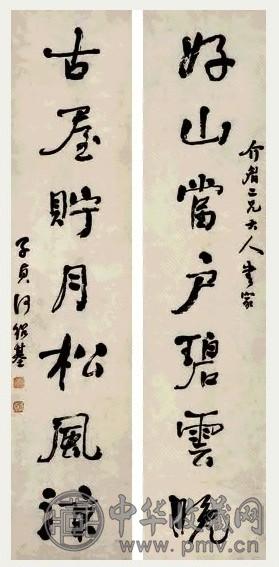 好山當户碧雲晚
介眉二兄大人書家
古屋貯月松風涼
子貞何紹基
中华收藏网
www.pmv.cn